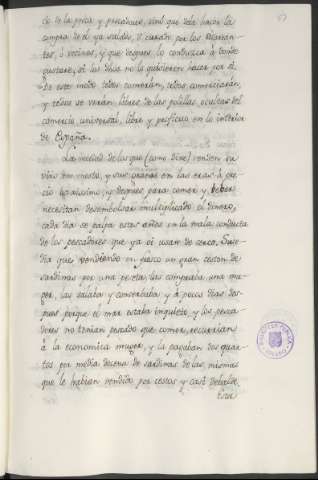 cio de la pesca y pescadores, sino que debe hacer la
compra de el ya salado, ó curado por los Fomentan-
tes, ó vecinos, y que despues lo conduzca à donde
gustare, si los dichos no lo quisieren hacer por sí.
De este modo todos comerán, todos comerciarán,
y todos se verán libres de las polillas ocultas del
comercio universal, libre y prolifico en lo interior
de España.
La necedad de los que (como dixe) venden su
vino por mosto, y sus granos en las eras à pre-
cio baxisimo, y despues para comer y beber
necesitan desembolsar multiplicado el dinero,
cada dia se palpa estos años en la mala conducta
de los pescadores que ya él usan de cerco. Suce-
dia que vendiendo en fresco un gran ceston de
sardinas por una peseta, las compraba una mu-
ger, las salaba y conservaba y à pocos dias des-
pues porque el mar estaba inquieto, y los pesca-
dores no traian pescado que comer, recurrian
à la economica muger, y la pagaban dos quar-
tos por media docena de sardinas de las mismas
que le habian vendido por cestos y casi de balde.
Este